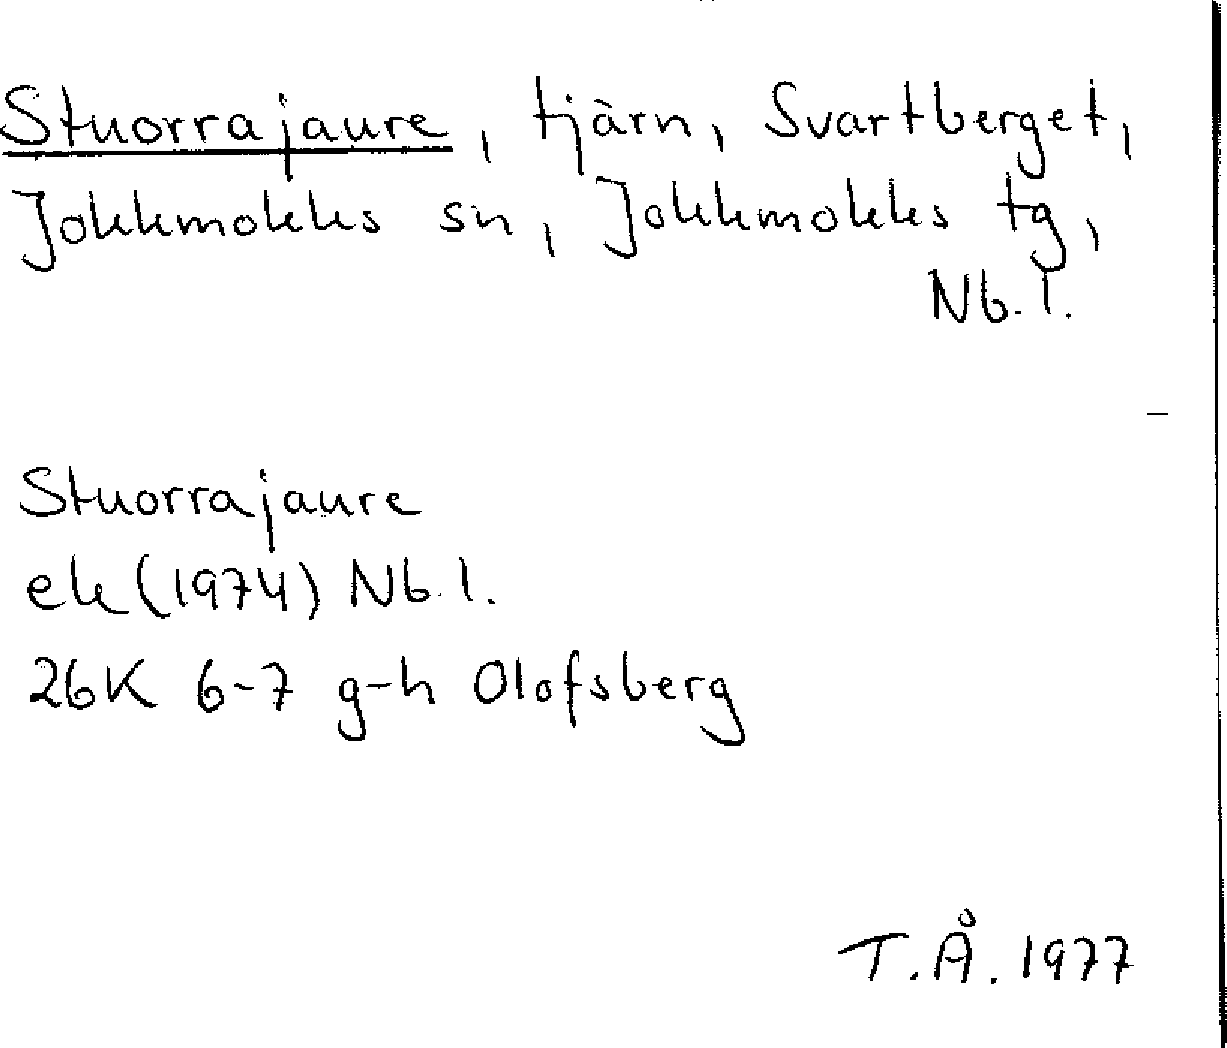 Stuorrajaure, tjärn, Svartberget,
Jokkmokks sn, Jokkmokks tg,
Nb. l.
Stuorrajaure
ek (1974) Nb. l.
26K 6-7 g-h Olofsberg
T.Å. 1977